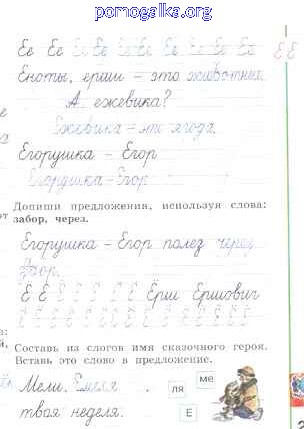 pomogalka.org
Ее Ее Ее Ее Ее Ее Ее Ее Ее
Еноты, ерши – это животные.
А ежевика?
Ежевика – это ягода.
Егорушка – Егор
Егорушка – Егор
Допиши предложения, используя слова:
забор, через.
Егорушка – Егор полез через
забор.
Ё Ё Ё Ё Ё Ё Ё Ёрш Ершович
Составь из слогов имя сказочного героя.
Вставь это слово в предложение.
Мели, Емеля,
твоя неделя.
ля ме
Е